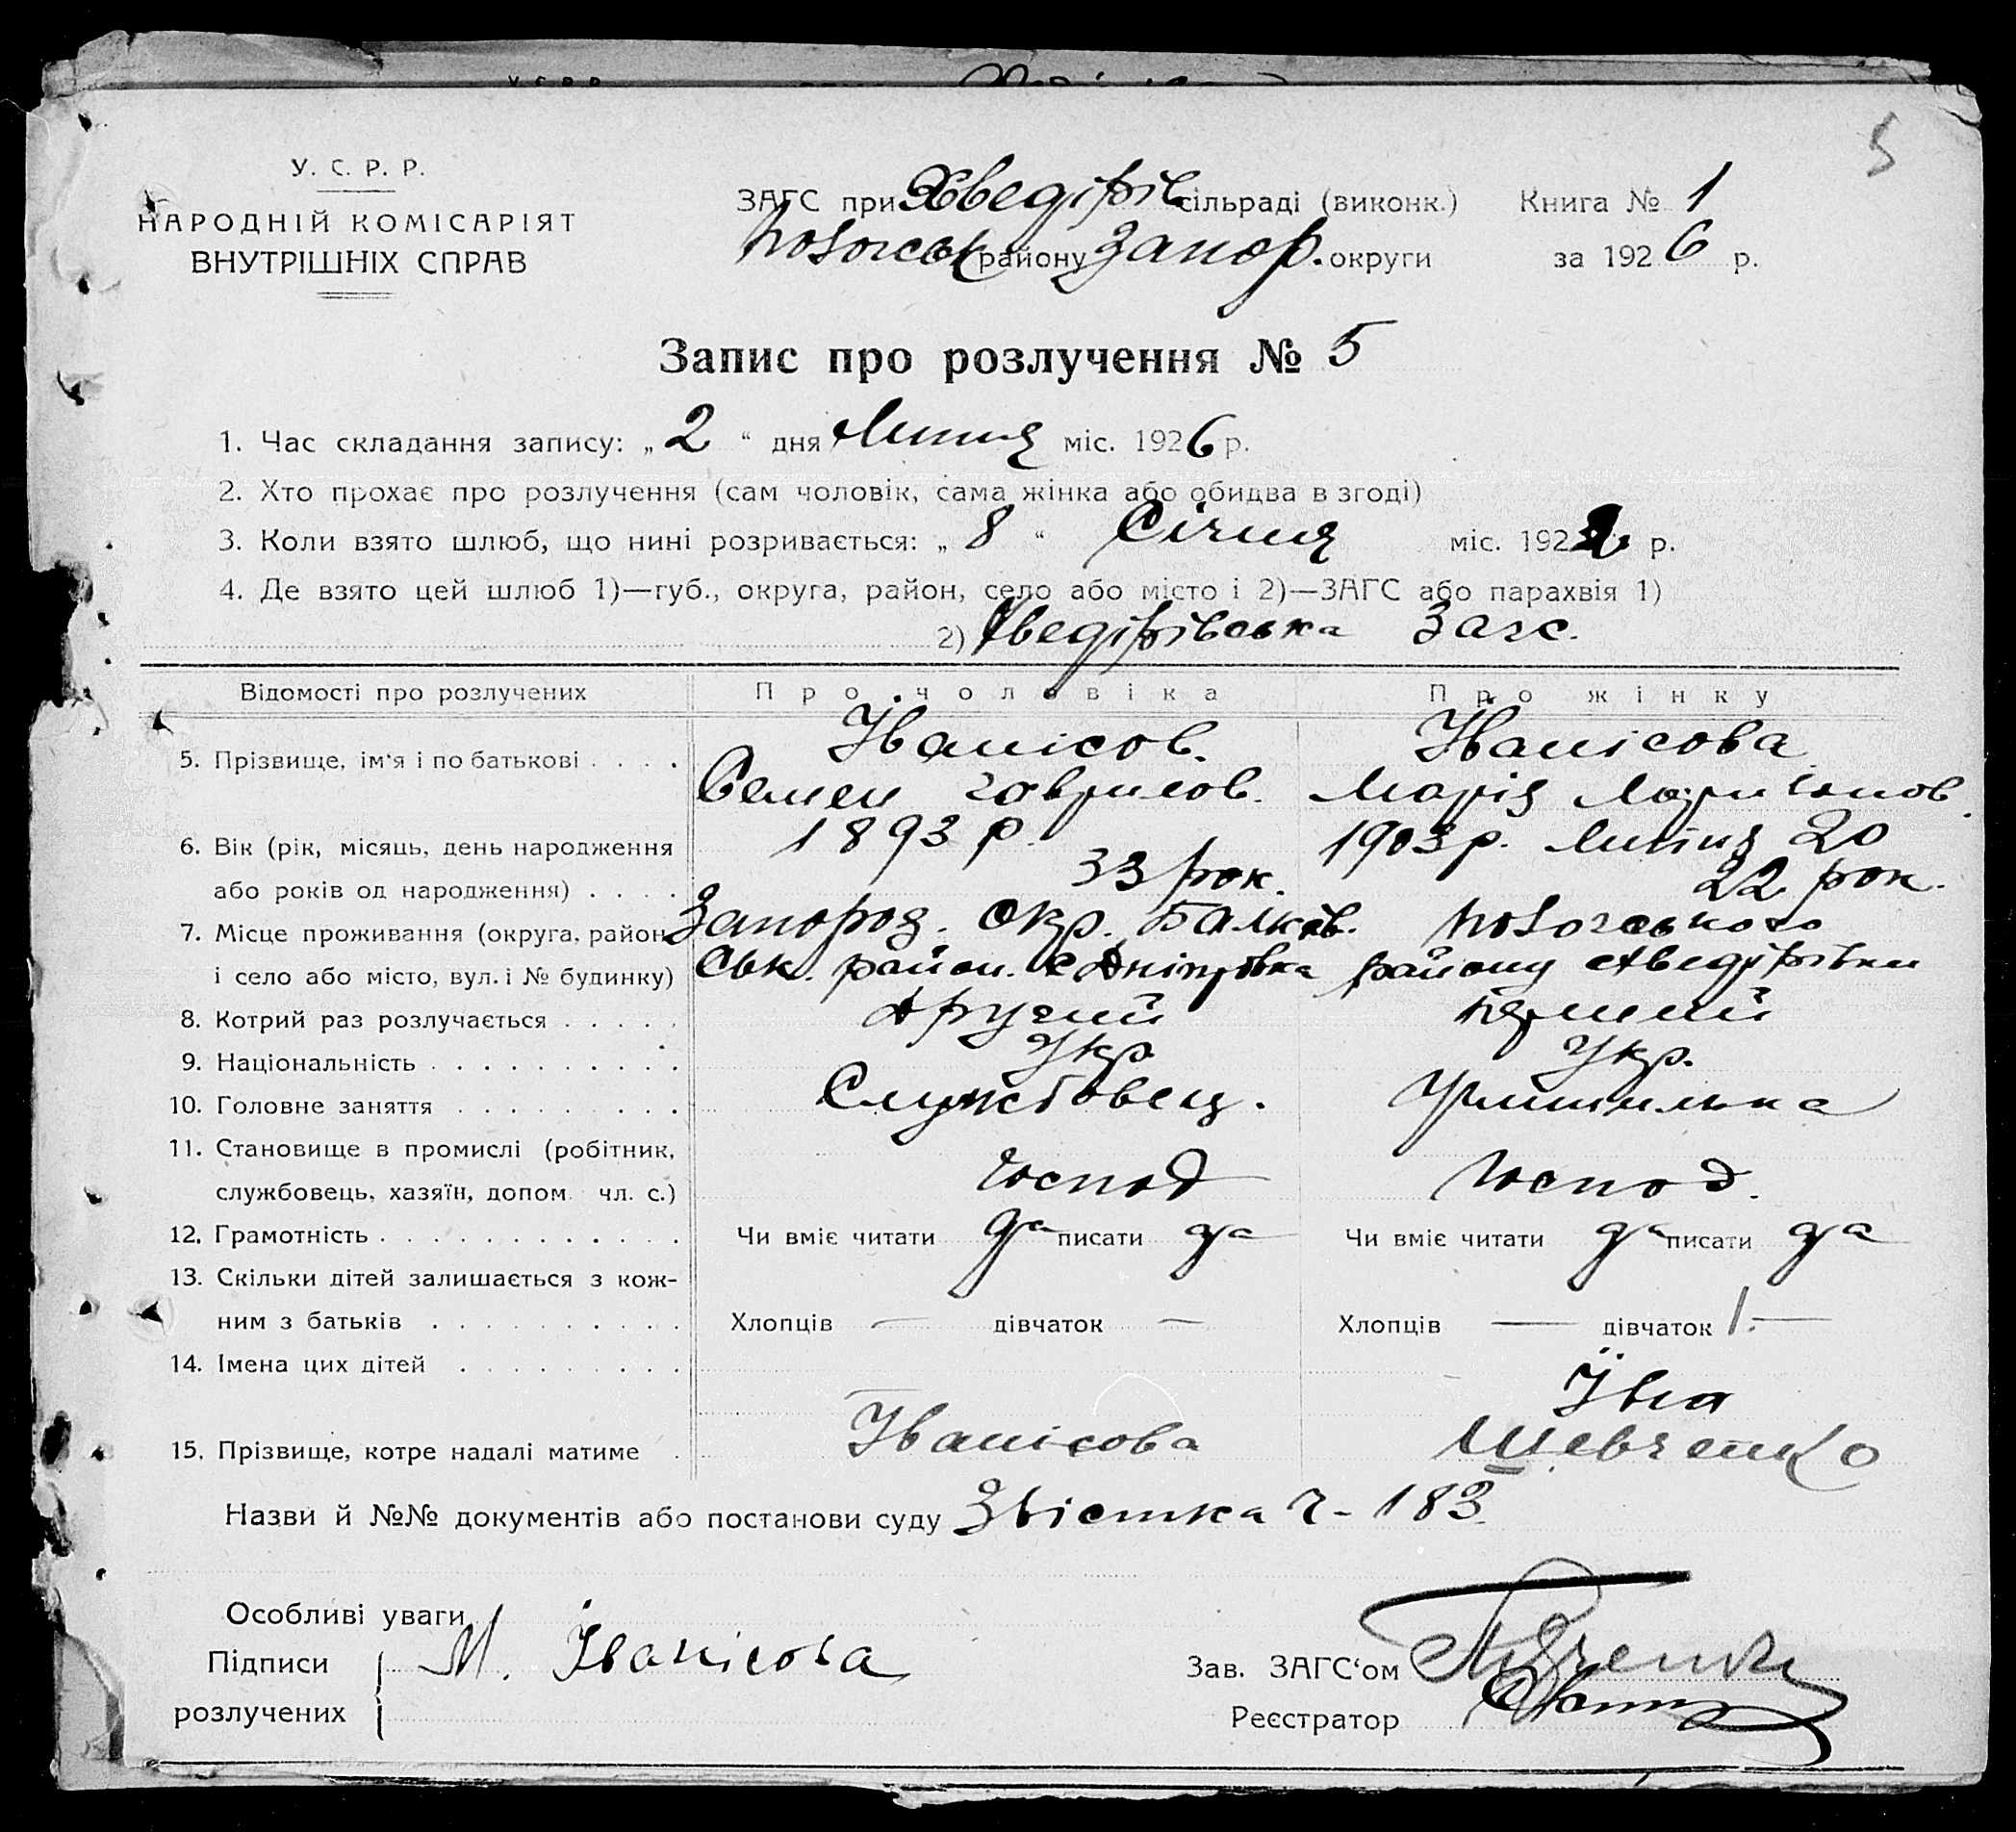 5
У. С. Р. Р.
НАРОДНІЙ КОМІСАРІЯТ
ВНУТРІШНІХ СПРАВ
ЗАГС при Хведірів сільраді (виконк.) Книга № 1
району Запор. округи за 1926 р.
Запис про розлучення № 5
1. Час складання запису: „ 2 “ дня Липня міс. 1926 р.
2. Хто прохає про розлучення (сам чоловік, сама жінка або обидва в згоді)
3. Коли взято шлюб, що нині розривається: „ 8 “ Січня міс. 192 р.
4. Де взято цей шлюб 1)—губ., округа, район, село або місто і 2)—ЗАГС або парахвія 1)
2) Хведірівська Загс.
Відомості про розлучених Про чоловіка Про жінку
5. Прізвище, ім'я і по батькові . . . . Іванісов. Іванісова
Семен Гаврилов. Марія
6. Вік (рік, місяць, день народження 1893 р. 1903 р. Липня 20
або років од народження) . . . . 33 рок. 22 рок.
7. Місце проживання (округа, район Запороз. окр. Балків.
і село або місто, вул. і № будинку) ськ. район. с Дніпровка району Хведірівки
8. Котрий раз розлучається . . . . . Другий перший
9. Національність . . . . . . . . . . Укр Укр.
10. Головне заняття . . . . . . . . . Службовец. Учителька
11. Становище в промислі (робітник,
службовець, хазяїн, допом. чл. с.) Господ Господ.
12. Грамотність . . . . . . . . . . . . Чи вміє читати да писати да Чи вміє читати да писати да
13. Скільки дітей залишається з кож-
ним з батьків . . . . . . . . . . Хлопців — дівчаток — Хлопців — дівчаток 1. —
14. Імена цих дітей . . . . . . . . .
15. Прізвище, котре надалі матиме . Іванісова Шевченко
Назви й №№ документів або постанови суду Звістка ч - 183
Особливі уваги
Підписи М. Іванісова Зав. ЗАГС‘ом
розлучених Реєстратор